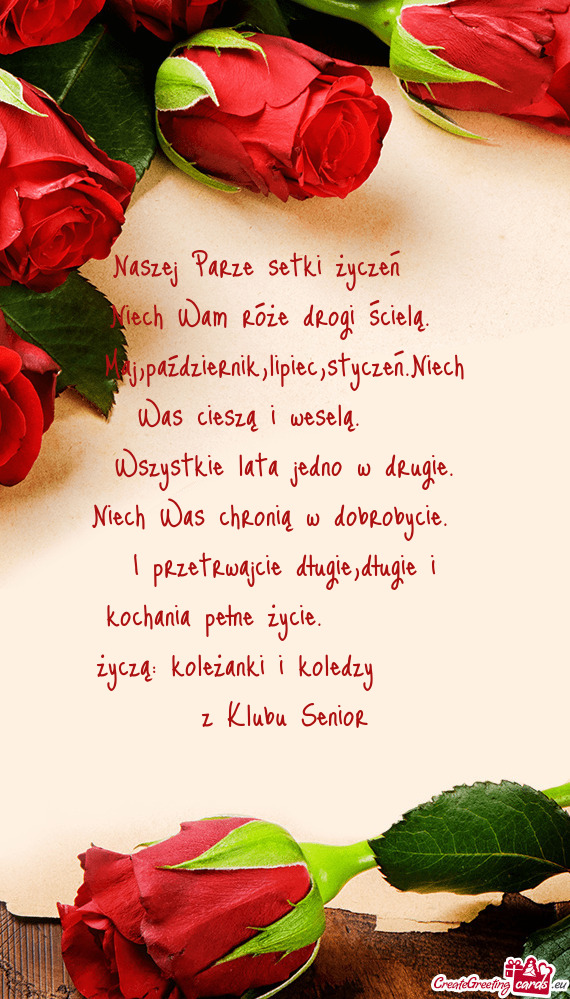 Naszej Parze setki życzeń
Niech Wam róże drogi ścielą.
Maj,październik,lipiec,styczeń.Niech
Was cieszą i weselą.
Wszystkie lata jedno w drugie.
Niech Was chronią w dobrobycie.
I przetrwajcie długie,długie i
kochania pełne życie.
życzą: koleżanki i koledzy
z Klubu Senior
CreateGreetingcards.eu